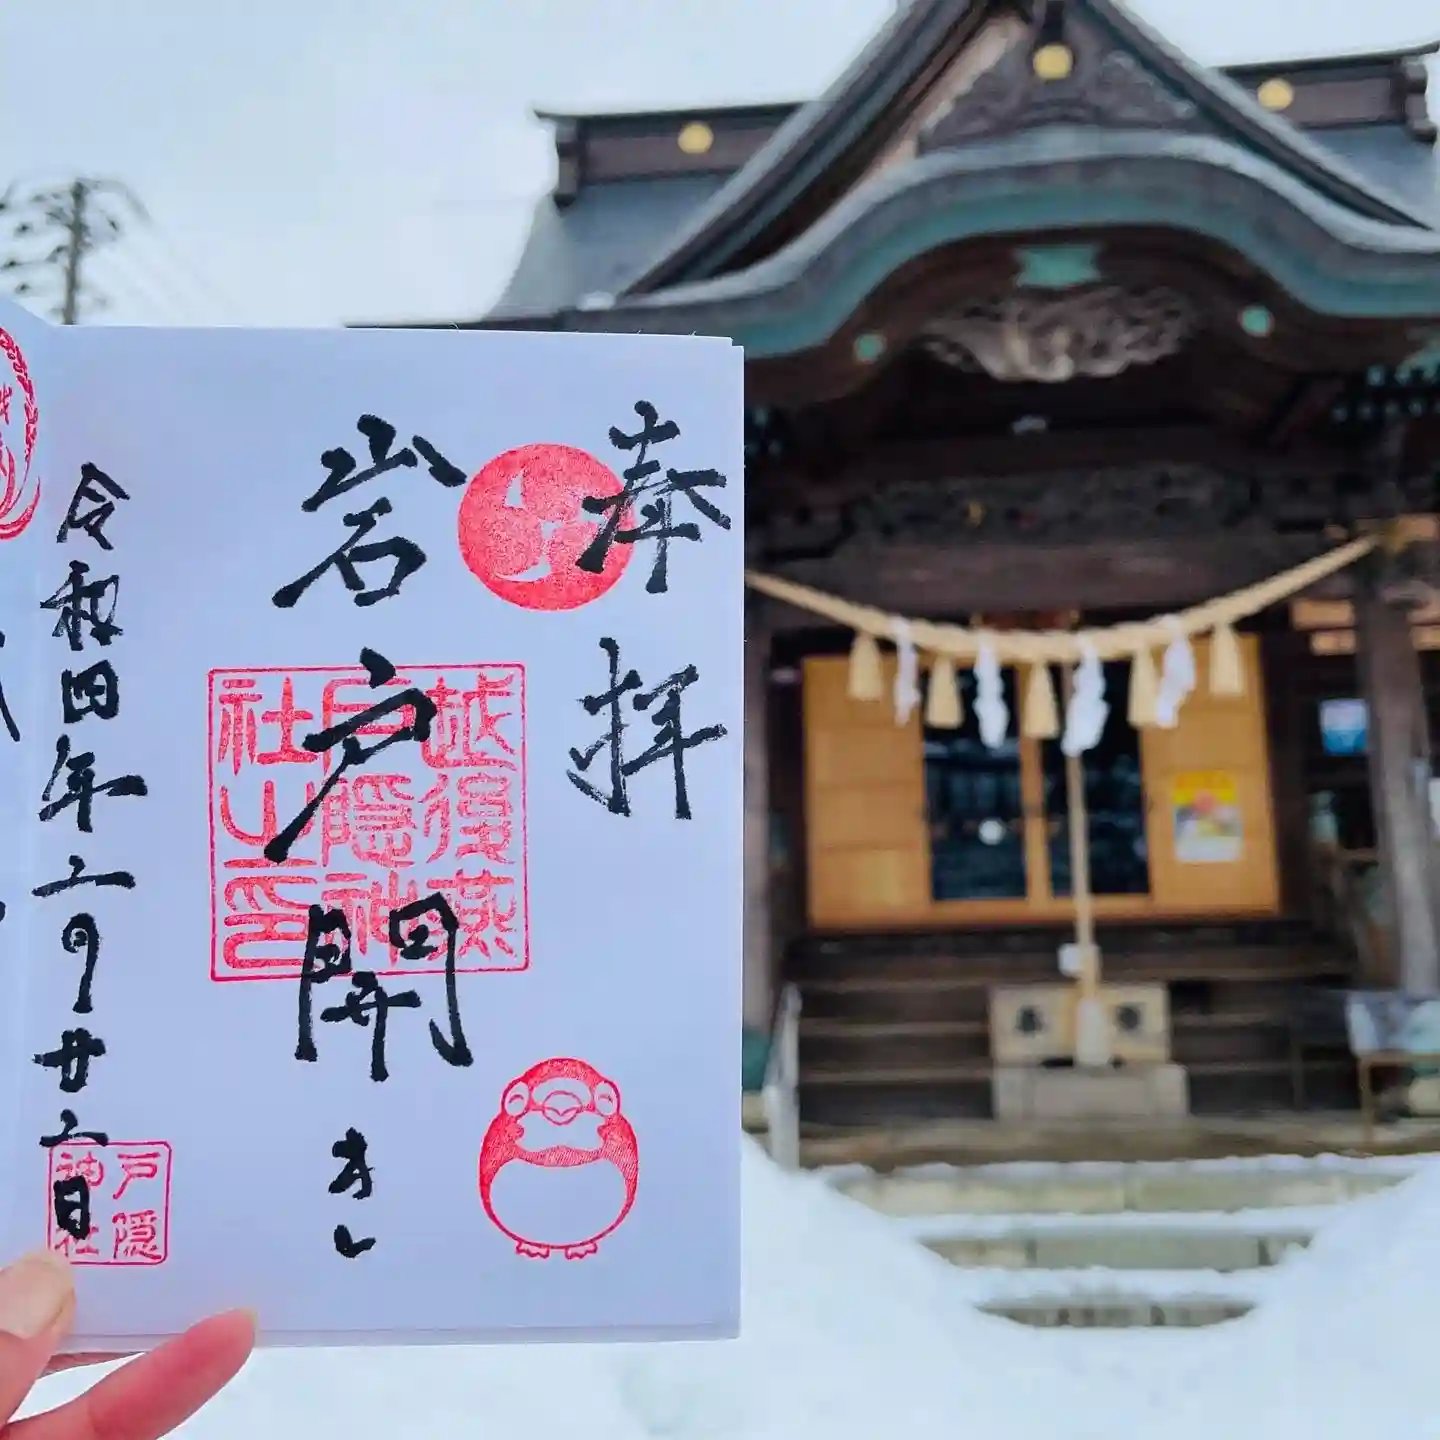 奉拝
岩戸開きし
越後燕
戸隠神
社之印
令和四年二月廿六日
戸隠
神社